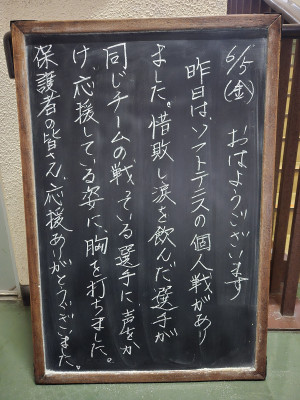 6/5(金)　おはようございます
昨日は、ソフトテニスの個人戦があり
ました。惜敗し涙を飲んだ選手が
同じチームの戦っている選手に声をか
け、応援している姿に、胸を打ちました。
保護者の皆さん、応援ありがとうございました。